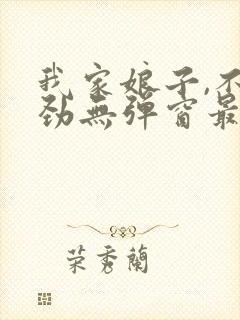 我家娘子,不
劲无弹窗最
荣秀兰